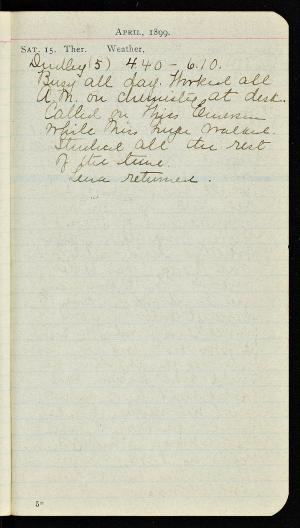 APRIL, 1899.
SAT. 15. Ther. Weather,
Dudley (5) 4 40 - 6.10.
Busy all day. Worked all
A.M. on chemistry at desk.
Called on Miss
while Miss walked.
Studied all the rest
of the time.
Lena returned.
5*